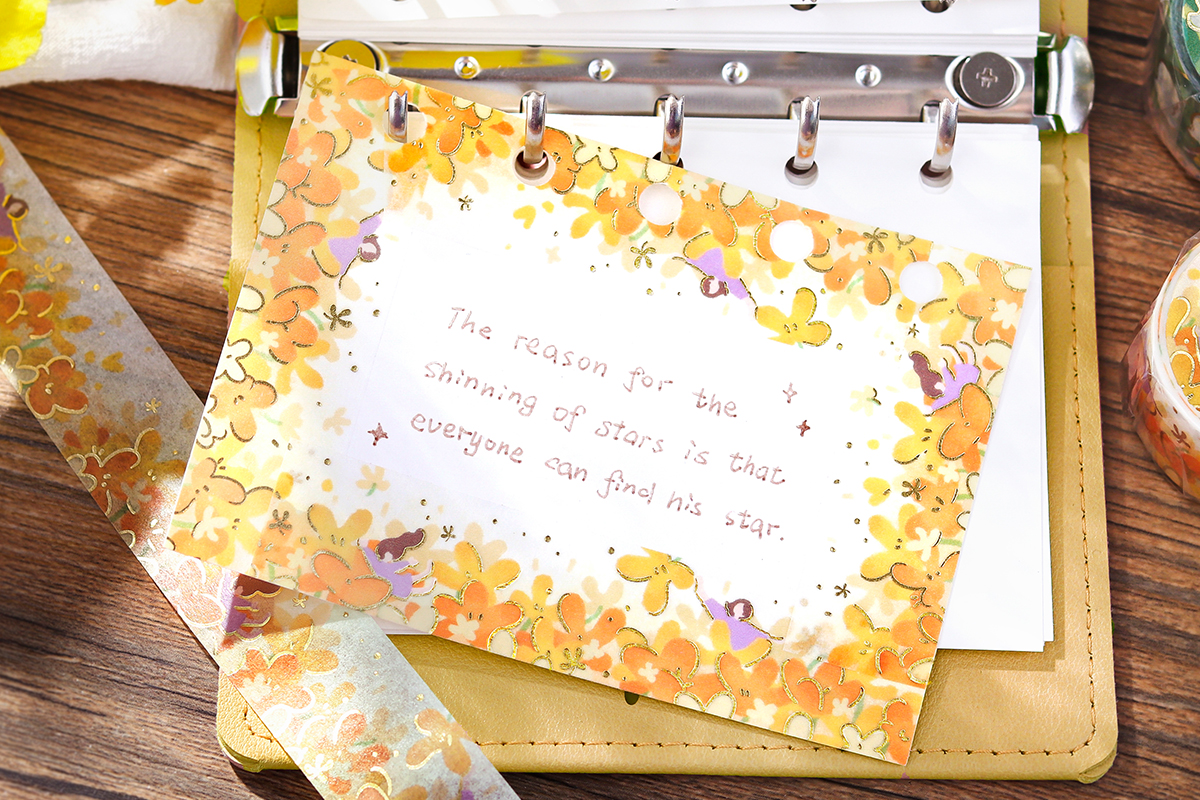 The reason for the
shinning of stars is that
everyone can find his star.